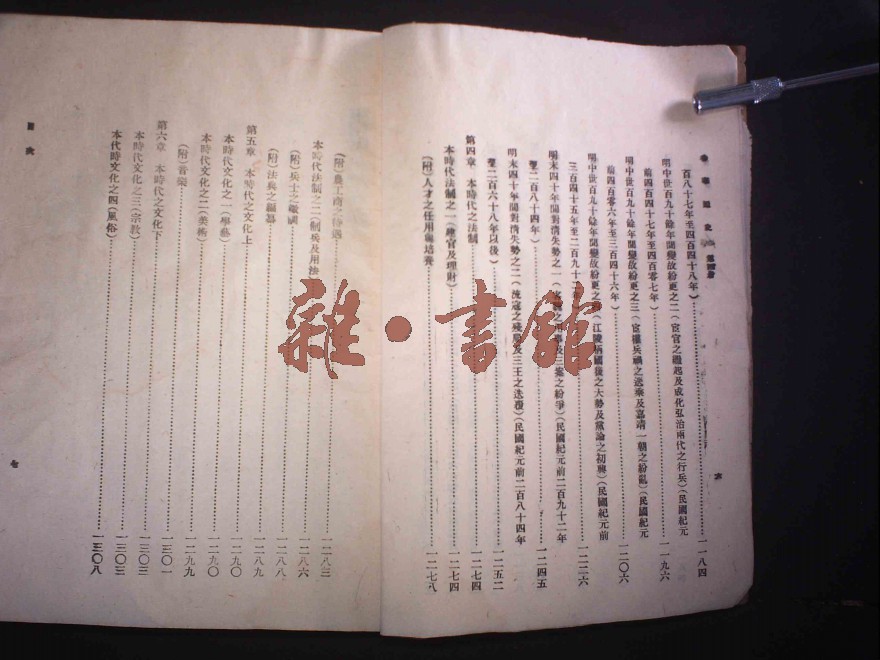 中華通史 第四册
百八十七年至四百四十八年)……一一八四
明中世百九十餘年間變故紛更之二(宦官之繼起及成化弘治兩代之行兵)(民國紀元
前四百四十七年至四百零七年)……一一九六
明中世百九十餘年間變故紛更之三(宦權兵禍之迭乘及嘉靖一朝之紛亂)(民國紀元
前四百零六年至三百四十六年)……一二〇六
明中世百九十餘年間變故紛更之(江陵柄國後之大勢及黨論之初興)(民國紀元前
三百四十五年至二百九十二……一二二六
明末四十年間對清失勢之一(案之紛爭)(民國紀元前二百九十二年
至二百八十四年)……一二四五
明末四十年間對清失勢之二(流寇之殘局及三王之迭覆)(民國紀元前二百八十四年
至二百六十八年以後)……一二五二
第四章 本時代之法制……一二七四
本時代法制之一(建官及理財)……一二七四
(附)人才之任用與培養……一二七八
六
目次
(附)農工商之待遇……一二八三
本時代法制之二(制兵及用法……一二八六
(附)兵士之……一二八八
(附)法典之編纂……一二八九
第五章 本時代之文化上……一二九〇
本時代文化之一(學藝)……一二九〇
本時代文化之二(美術)……一二九九
(附)音樂……一三〇一
第六章 本時代之文化下……一三〇三
本時代文化之三(宗教)……一三〇三
本代時文化之四(風俗)……一三〇八
七
雜·書館